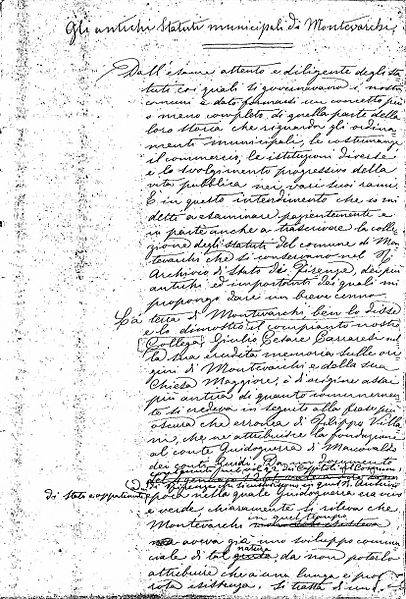 Gli antichi Statuti municipali di Montevarchi
Dall'esame attento e diligente degli sta
tuti coi quali si governavano i nostri
comuni è dato formarsi un concetto più
o meno completo, di quella parte della
loro storia che riguarda gli ordina
menti municipali, le costumanze
il commercio, le istituzioni diverse
e lo svolgimento progressivo della
vita pubblica nei vari suoi rami.
È in questo intendimento che io mi
detti a esaminare pazientemente e
in parte anche a trascrivere la colle
zione degli statuti del comune di Mon
tevarchi che si conservano nel R.
Archivio di Stato di Firenze, dei più
antichi ed importanti dei quali mi
propongo dare un breve cenno
La terra di Montevarchi, ben lo disse
e lo dimostrò il compianto nostro
Collega Giulio Cesare Carraresi nel
la sua erudita memoria sulle ori
gini di Montevarchi e della sua
Chiesa Maggiore, è d'origine assai
più antica di quanto comunemen
te si credeva in seguito alla frase più
oscura che erronea di Filippo Villa
ni, che ne attribuisce la fondazione
al conte Guidoguerra di Marcovaldo
dei conti Guidi. Da un documento
di Stato e appartenente
poca nella quale Guidoguerra era vivo
e verde, chiaramente si rileva che
Montevarchi in quel tempo
aveva già uno sviluppo commer
ciale di tal natura da non poterlo
attribuire che a una lunga e pro
vata esistenza. Si tratta di una